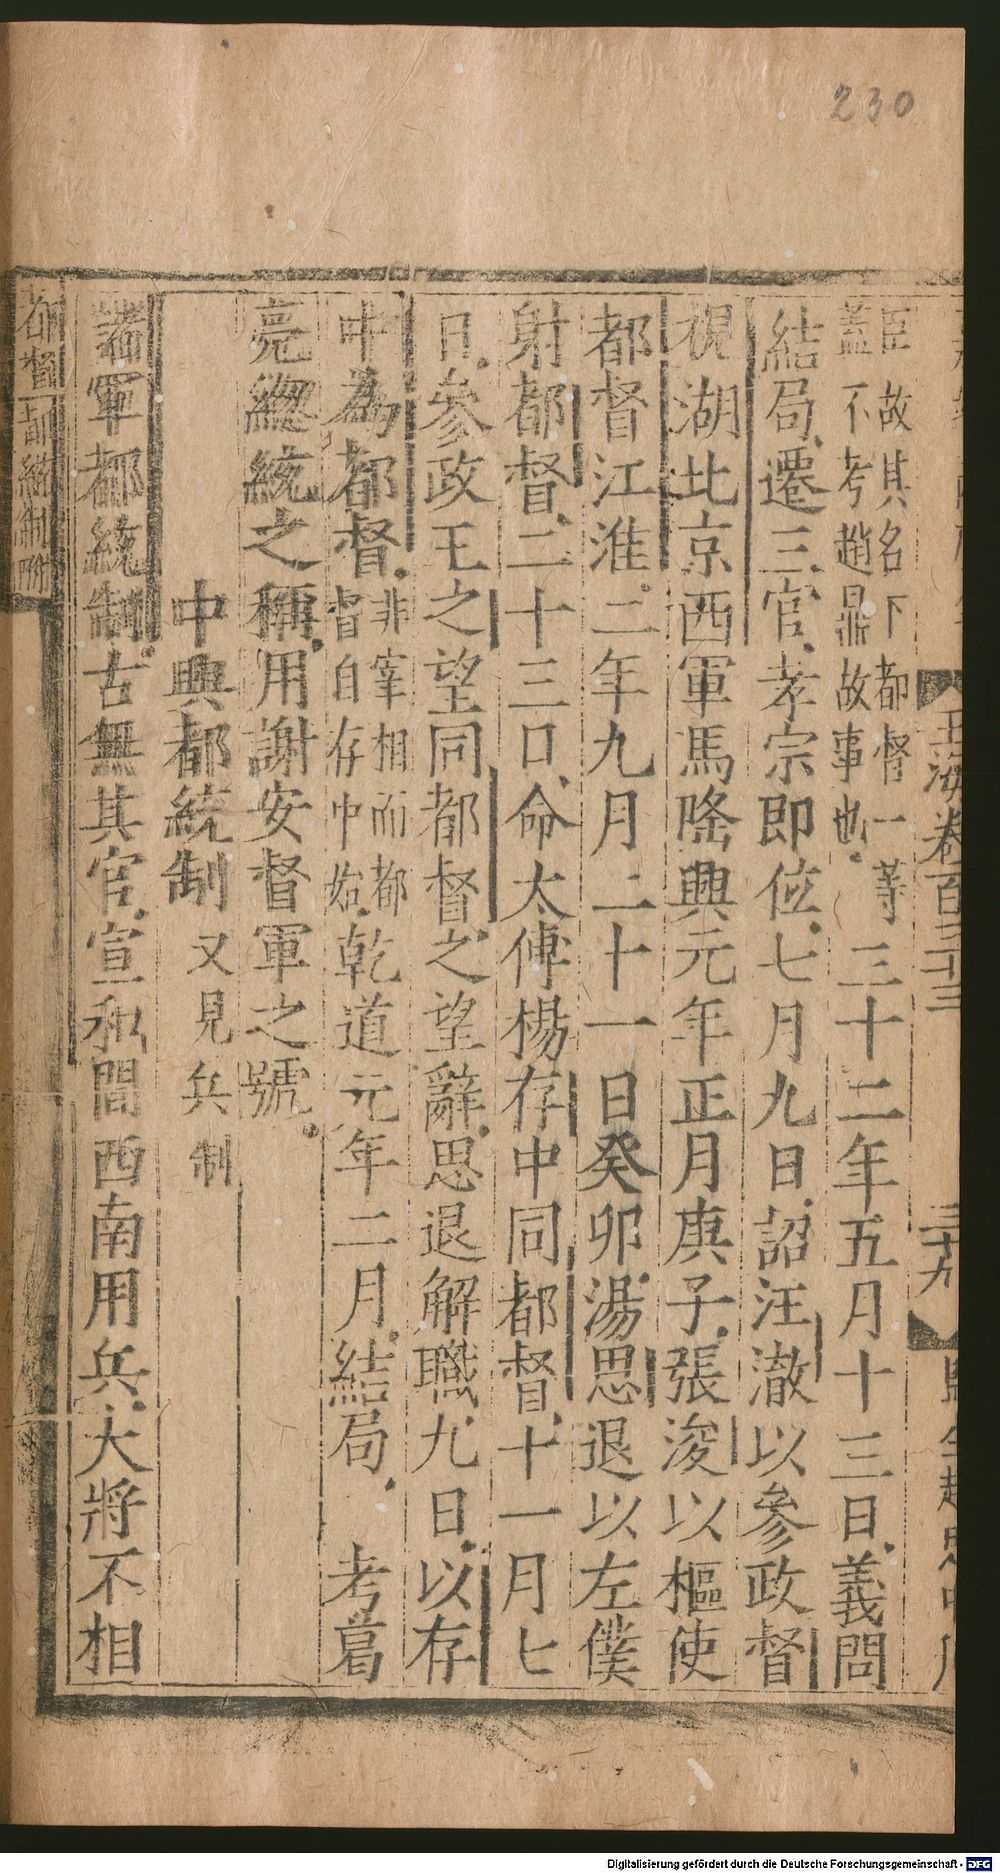 230
玉海卷百三十三
二十九
臣故其名下都督一等
蓋不考趙鼎故事也
三十二年五月十三日義問
結局遷三官孝宗即位七月九日詔汪澈以參政督
視湖北京西軍馬隆興元年正月庚子張浚以樞使
都督江淮二年九月二十一日癸卯湯思退以左僕
射都督二十三日命太傅楊存中同都督十一月七
日參政王之望同都督之望辭思退解職九日以存
中為都督
非宰相而都
督自存中始
乾道元年二月結局 考葛
亮緫統之稱用謝安督軍之號
中興都統制 又見兵制
諸軍都統制古無其官宣和間西南用兵大將不相
都督 都統制附
Digitalisierung gefördert durch die Deutsche Forschungsgemeinschaft - DFG